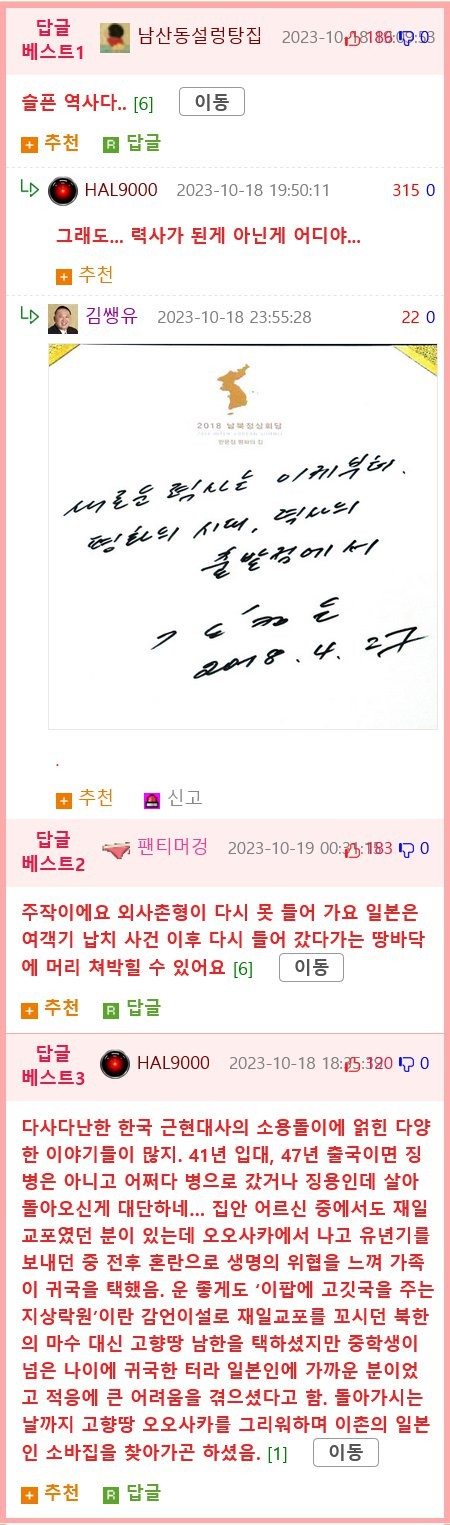 답글
베스트1
남산동설렁탕집
슬픈 역사다.. [6] 이동
추천 답글
HAL9000 2023-10-18 19:50:11 315 0
그래도... 력사가 된게 아닌게 어디야...
추천
김쌩유 2023-10-18 23:55:28 22 0
2018 남북정상회담
평화의 집
새로운 력사는 이제부터.
평화의 시대, 력사의
출발점에서
김정은
2018. 4. 27
.
추천 신고
답글
베스트2
팬티머겅 2023-10-19 183 0
주작이에요 외사촌형이 다시 못 들어 가요 일본은
여객기 납치 사건 이후 다시 들어 갔다가는 땅바닥
에 머리 쳐박힐 수 있어요 [6] 이동
추천 답글
답글
베스트3
HAL9000 2023-10-18 120 0
다사다난한 한국 근현대사의 소용돌이에 얽힌 다양
한 이야기들이 많지. 41년 입대, 47년 출국이면 징
병은 아니고 어쩌다 병으로 갔거나 징용인데 살아
돌아오신게 대단하네... 집안 어르신 중에서도 재일
교포였던 분이 있는데 오오사카에서 나고 유년기를
보내던 중 전후 혼란으로 생명의 위협을 느껴 가족
이 귀국을 택했음. 운 좋게도 ‘이팝에 고깃국을 주는
지상락원’이란 감언이설로 재일교포를 꼬시던 북한
의 마수 대신 고향땅 남한을 택하셨지만 중학생이
넘은 나이에 귀국한 터라 일본인에 가까운 분이었
고 적응에 큰 어려움을 겪으셨다고 함. 돌아가시는
날까지 고향땅 오오사카를 그리워하며 이촌의 일본
인 소바집을 찾아가곤 하셨음. [1] 이동
추천 답글